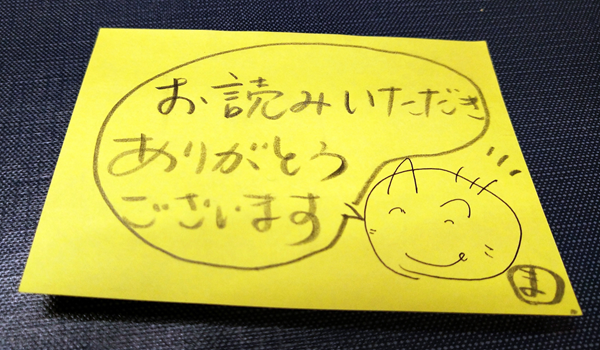 お読みいただき
ありがとう
ございます
ま